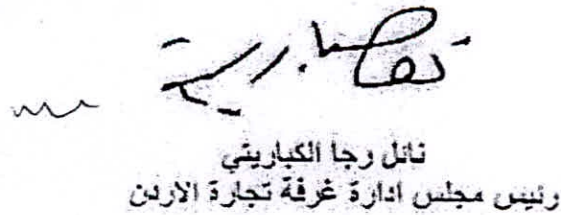 نائل رجا الكباريتي
رئيس مجلس ادارة غرفة تجارة الاردن